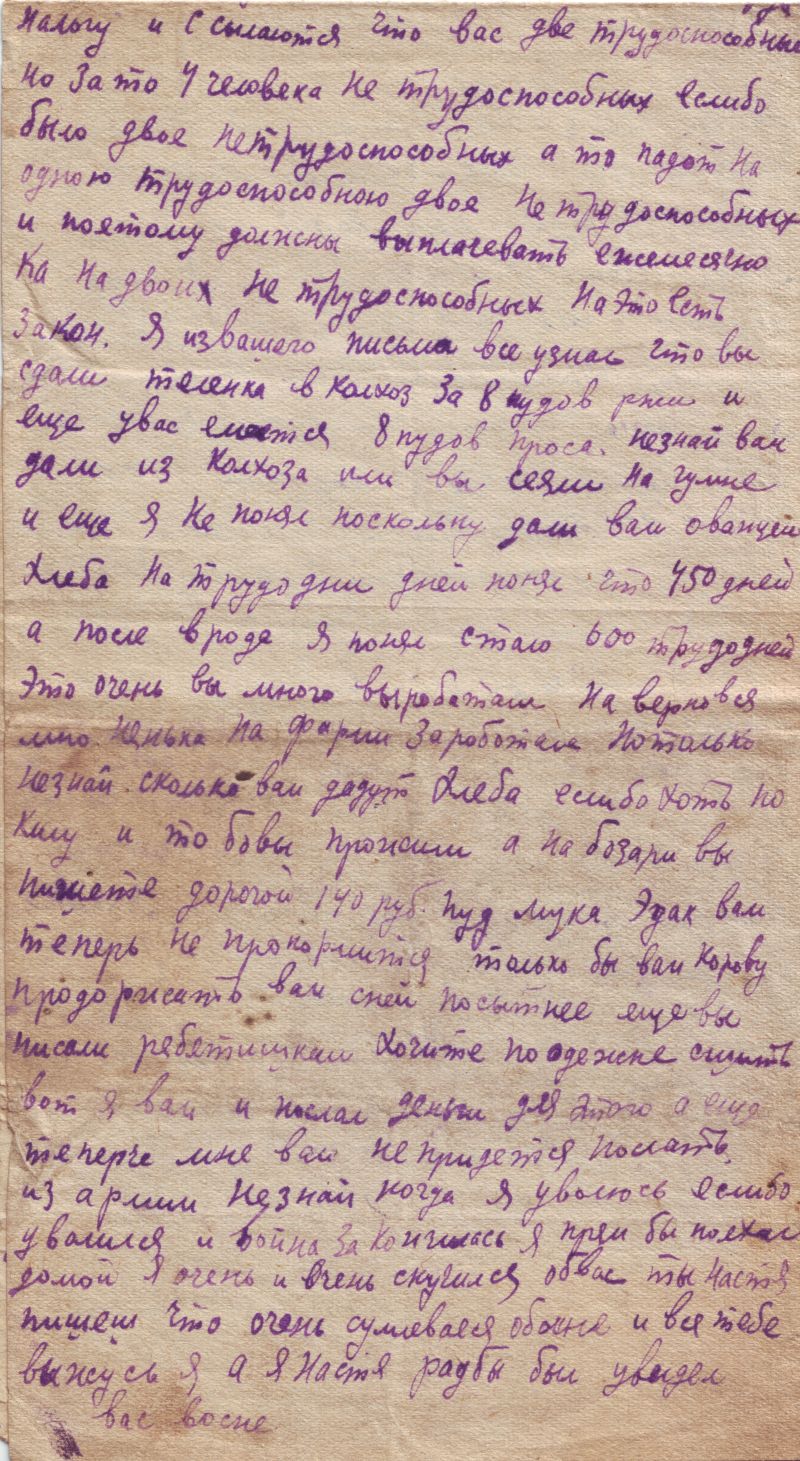 налогу и ссылаются что вас две трудоспособные
но зато 4 человека не трудоспособных еслибо
было двое нетрудоспособных а то падот на
одною трудоспособною двоя не трудоспособных
и поятому должны выплачевать ежемесячно
ка на двоих не трудоспособных На это есть
закон. Я извашего письма все узнал что вы
сдали теленка в колхоз за 8 пудов ржи и
еще увас емеется 8 пудов проса. незнай вам
дали из колхоза или вы сеяли на гумне
и еще я не понял поскольку дали вам
хлеба на трудодни дней понял что 450 дней
а после вроде я понял стало 600 трудодней
Это очень вы много выроботали На верно вся
нянька на фирми зароботала Нотолько
незнай сколько вам дадут хлеба еслибо хоть по
килу и то бовы прожили а на бозари вы
пишете дорогой 140 руб. пуд мука Эдак вам
теперь не прокормится только бы вам корову
продоржать вам сней посытнее еще вы
писали ребятишкам хочите по одежке сшить
вот я вам и послал деньги для этого а еще
теперче мне вам не придется послать.
из армии незнай когда я уволюсь еслибо
уволился и война закончилась я прям бы поехал
домой Я очень и очень скучился обвас ты Настя
пишеш что очень сумлеваеся обомне и вся тебе
выжусь я, а я Настя радбы был увидел
вас восне